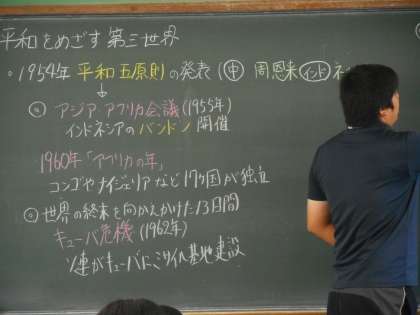 平和をめざす第三世界
。1954年 平和五原則の発表 (中 周恩来 インド ネ
↓
◎ アジア アフリカ会議 (1955年)
インドネシアのバンドン 開催
1960年「アフリカの年」
コンゴやナイジェリアなど17ヶ国が独立
◎ 世界の終末を向かえかけた13日間
キューバ危機 (1962年)
ソ連がキューバにミサイル基地建設